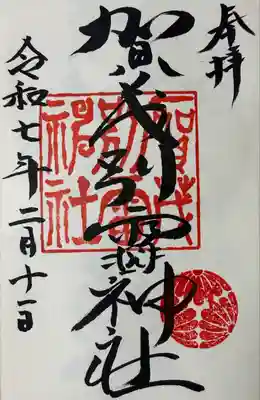 奉拝
賀茂別雷神社
賀茂別雷神社
令和七年二月十一日